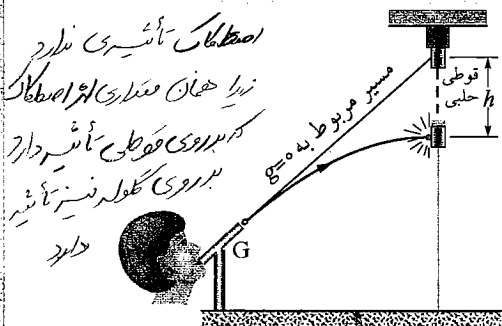 اصطکاک تأثیری ندارد
زیرا همان مقداری از اصطکاک
که بر روی قوطی تأثیر دارد
بر روی گلوله نیز تأثیر
دارد
مسیر مربوط به g=0
قوطی
حلبی
h
G